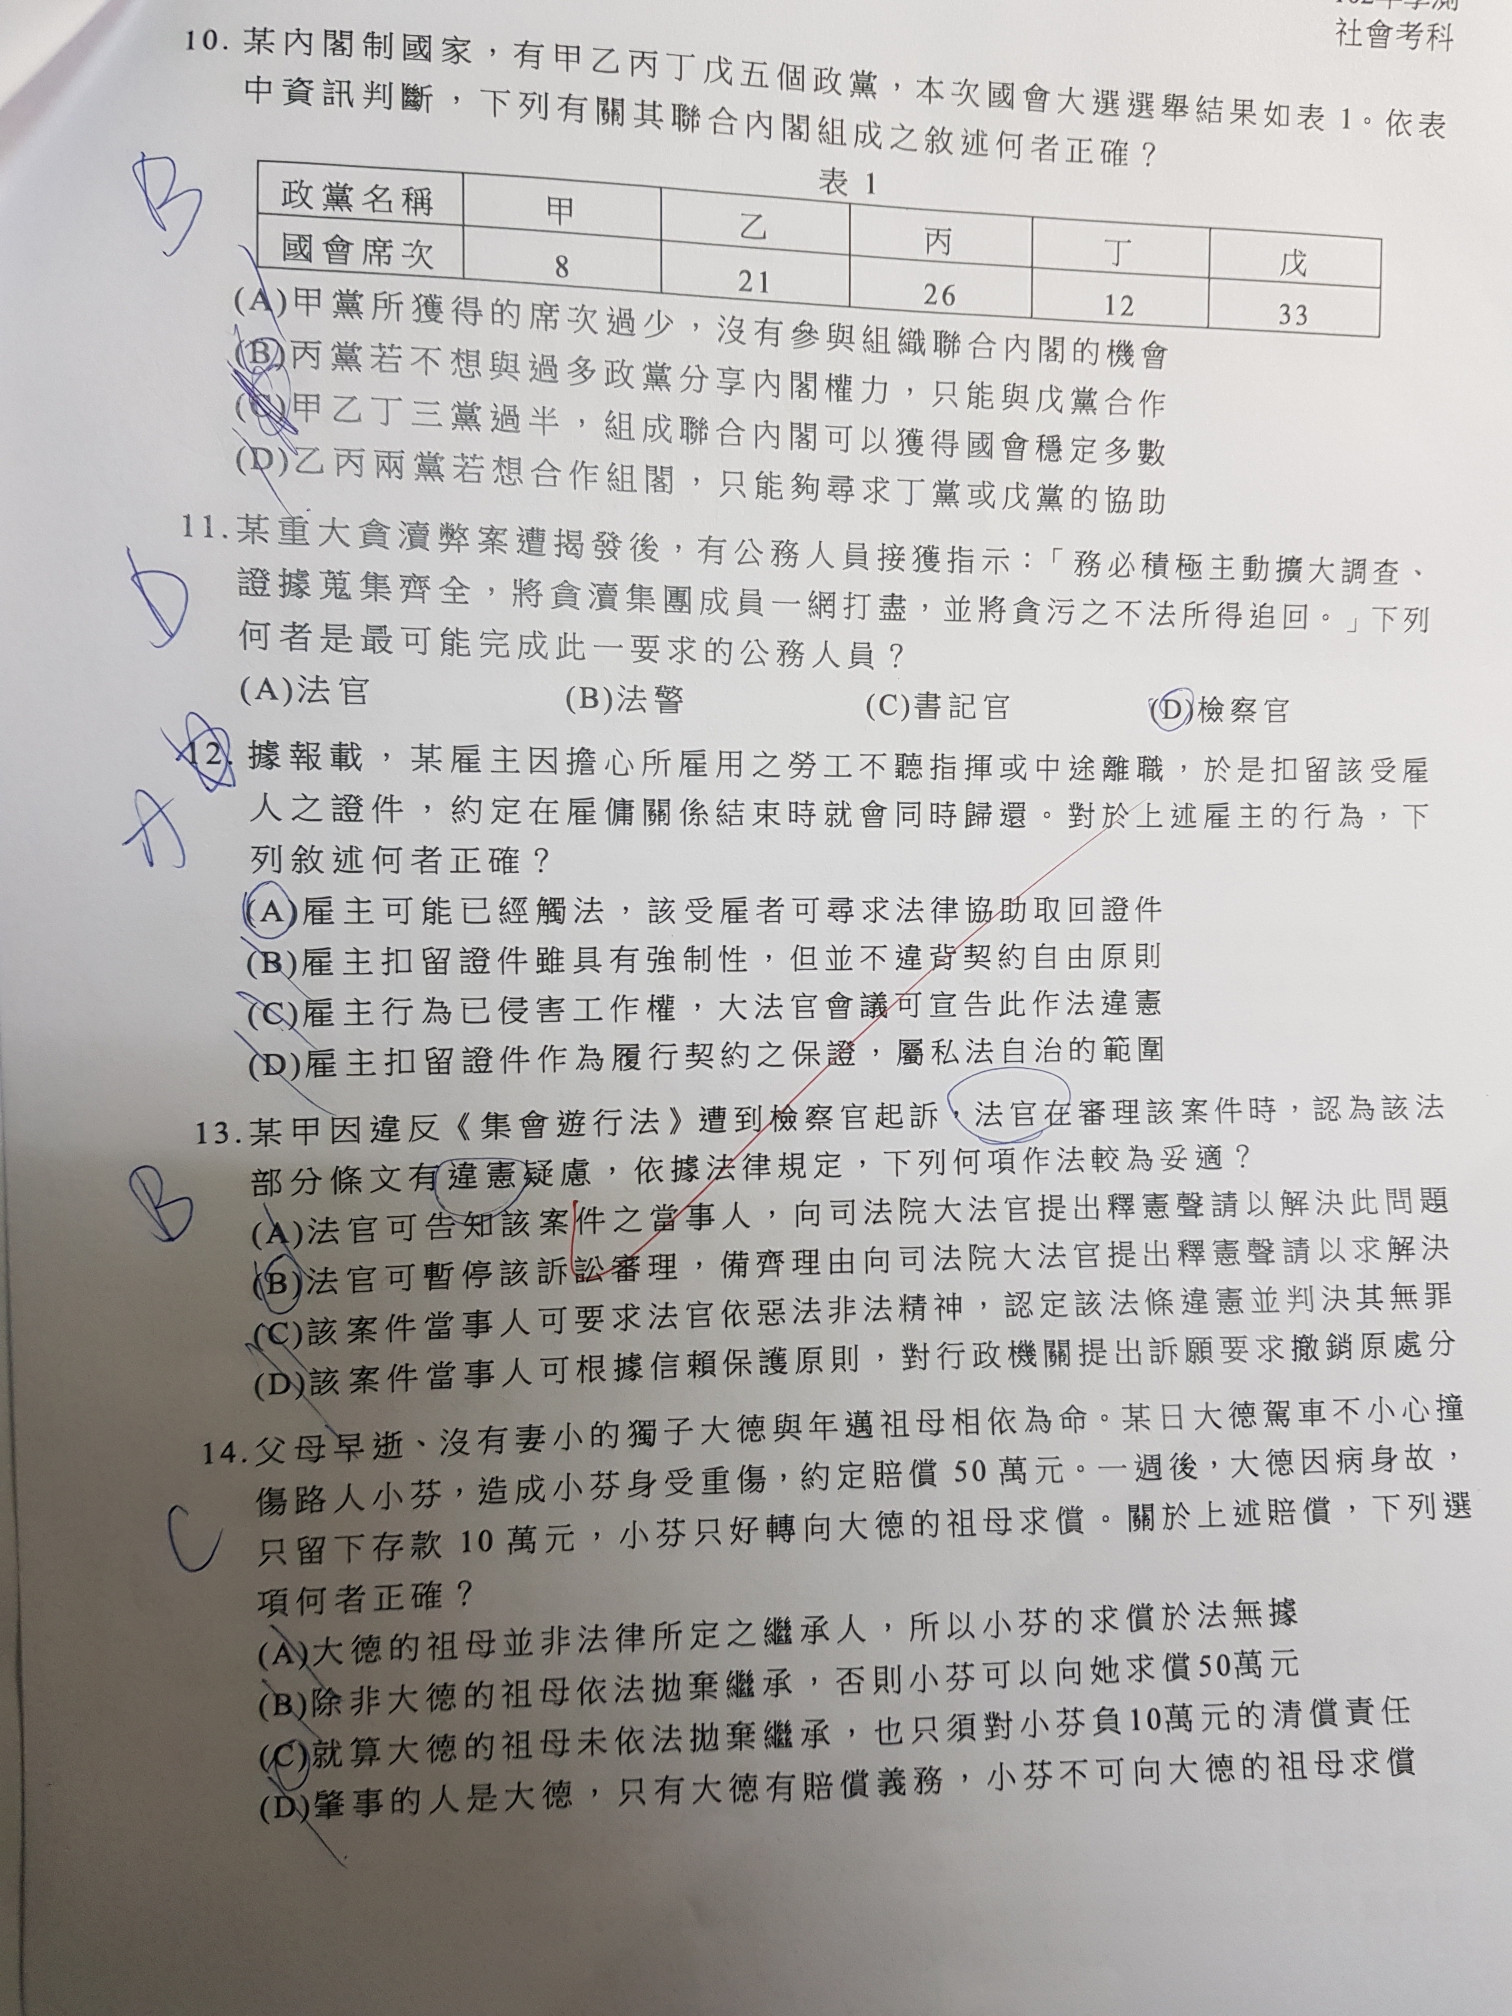 社會考科
10. 某內閣制國家，有甲乙丙丁戊五個政黨，本次國會大選選舉結果如表 1。依表
中資訊判斷，下列有關其聯合內閣組成之敘述何者正確？
表 1
B
政黨名稱 甲 乙 丙 丁 戊
國會席次 8 21 26 12 33
(A)甲黨所獲得的席次過少，沒有參與組織聯合內閣的機會
(B)丙黨若不想與過多政黨分享內閣權力，只能與戊黨合作
(C)甲乙丁三黨過半，組成聯合內閣可以獲得國會穩定多數
(D)乙丙兩黨若想合作組閣，只能夠尋求丁黨或戊黨的協助
11. 某重大貪瀆弊案遭揭發後，有公務人員接獲指示：「務必積極主動擴大調查、
D
證據蒐集齊全，將貪瀆集團成員一網打盡，並將貪污之不法所得追回。」下列
何者是最可能完成此一要求的公務人員？
(A)法官 (B)法警 (C)書記官 (D)檢察官
12. 據報載，某雇主因擔心所雇用之勞工不聽指揮或中途離職，於是扣留該受雇
A
人之證件，約定在雇傭關係結束時就會同時歸還。對於上述雇主的行為，下
列敘述何者正確？
(A)雇主可能已經觸法，該受雇者可尋求法律協助取回證件
(B)雇主扣留證件雖具有強制性，但並不違背契約自由原則
(C)雇主行為已侵害工作權，大法官會議可宣告此作法違憲
(D)雇主扣留證件作為履行契約之保證，屬私法自治的範圍
13. 某甲因違反《集會遊行法》遭到檢察官起訴，法官在審理該案件時，認為該法
B
部分條文有違憲疑慮，依據法律規定，下列何項作法較為妥適？
(A)法官可告知該案件之當事人，向司法院大法官提出釋憲聲請以解決此問題
(B)法官可暫停該訴訟審理，備齊理由向司法院大法官提出釋憲聲請以求解決
(C)該案件當事人可要求法官依惡法非法精神，認定該法條違憲並判決其無罪
(D)該案件當事人可根據信賴保護原則，對行政機關提出訴願要求撤銷原處分
14. 父母早逝、沒有妻小的獨子大德與年邁祖母相依為命。某日大德駕車不小心撞
傷路人小芬，造成小芬身受重傷，約定賠償 50 萬元。一週後，大德因病身故，
C
只留下存款 10 萬元，小芬只好轉向大德的祖母求償。關於上述賠償，下列選
項何者正確？
(A)大德的祖母並非法律所定之繼承人，所以小芬的求償於法無據
(B)除非大德的祖母依法拋棄繼承，否則小芬可以向她求償50萬元
(C)就算大德的祖母未依法拋棄繼承，也只須對小芬負10萬元的清償責任
(D)肇事的人是大德，只有大德有賠償義務，小芬不可向大德的祖母求償